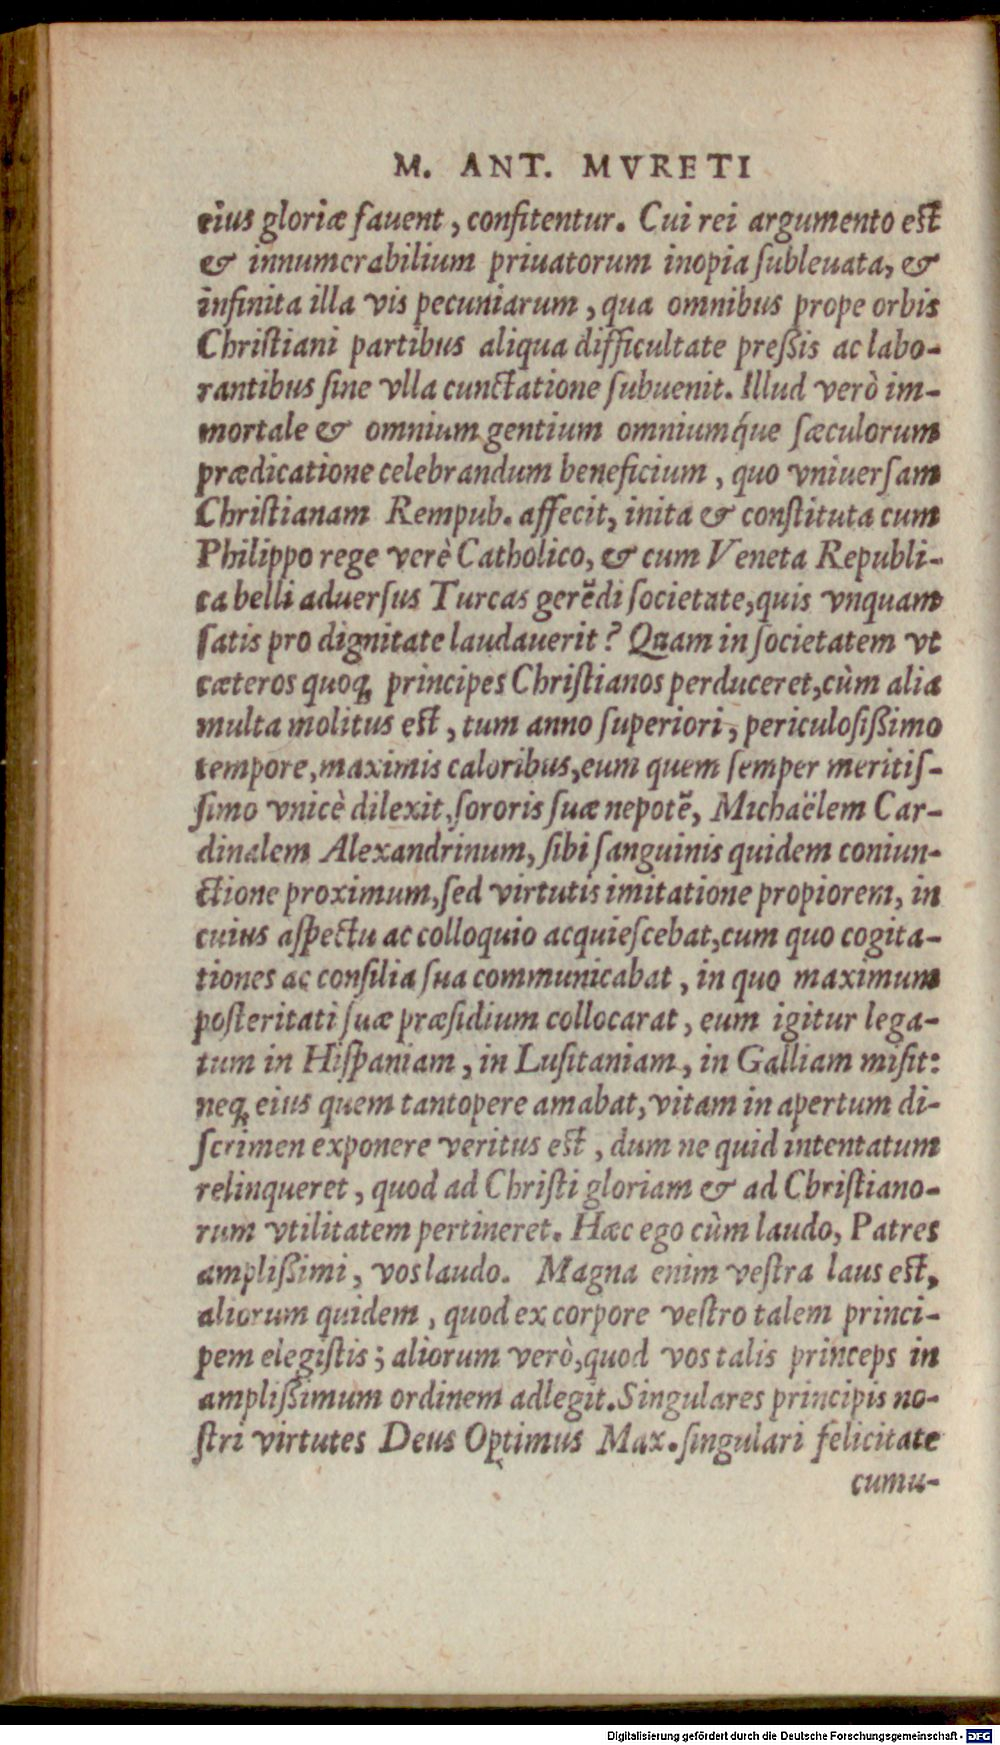 M. ANT. MVRETI
eius gloriæ fauent, confitentur. Cui rei argumento est
& innumerabilium priuatorum inopia ſubleuata, &
infinita illa vis pecuniarum, qua omnibus prope orbis
Chriſtiani partibus aliqua difficultate preßis ac labo-
rantibus ſine vlla cunctatione ſubuenit. Illud verò im-
mortale & omnium gentium omniumq́ue ſæculorum
prædicatione celebrandum beneficium, quo vniuerſam
Chriſtianam Rempub. affecit, inita & conſtituta cum
Philippo rege verè Catholico, & cum Veneta Republi-
ca belli aduerſus Turcas gerẽdi ſocietate, quis vnquam
ſatis pro dignitate laudauerit? Quam in ſocietatem vt
cæteros quoq; principes Chriſtianos perduceret, cùm alia
multa molitus eſt, tum anno ſuperiori, periculoſißimo
tempore, maximis caloribus, eum quem ſemper meritiſ-
ſimo vnicè dilexit, ſororis ſuæ nepotẽ, Michaëlem Car-
dinalem Alexandrinum, ſibi ſanguinis quidem coniun-
ctione proximum, ſed virtutis imitatione propiorem, in
cuius aſpectu ac colloquio acquieſcebat, cum quo cogita-
tiones ac conſilia ſua communicabat, in quo maximum
poſteritati ſuæ præſidium collocarat, eum igitur lega-
tum in Hiſpaniam, in Luſitaniam, in Galliam miſit:
neq; eius quem tantopere amabat, vitam in apertum di-
ſcrimen exponere veritus eſt, dum ne quid intentatum
relinqueret, quod ad Chriſti gloriam & ad Chriſtiano-
rum vtilitatem pertineret. Hæc ego cùm laudo, Patres
amplißimi, vos laudo. Magna enim veſtra laus eſt,
aliorum quidem, quod ex corpore veſtro talem princi-
pem elegiſtis; aliorum verò, quod vos talis princeps in
amplißimum ordinem adlegit. Singulares principis no-
ſtri virtutes Deus Optimus Max. ſingulari felicitate
cumu-
Digitalisierung gefördert durch die Deutsche Forschungsgemeinschaft - DFG